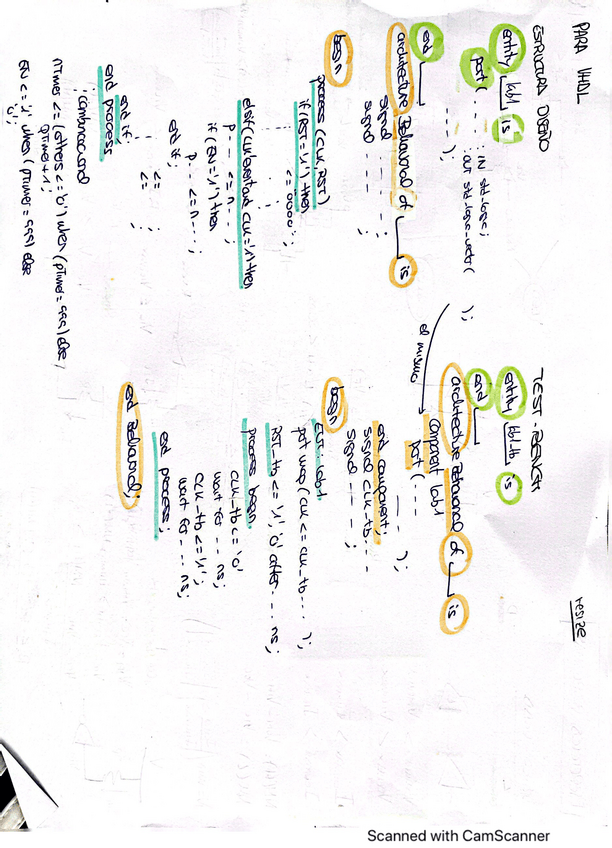 PARA VHDL
ESTRUCTURA DISEÑO
entity lab1 is
port ( - - - : IN std_logic;
: out std_logic_vector ( );
- - - - );
end
architecture Behavioral of is
signal - - - - ;
signal - - - - ;
begin
process (CLK, RST)
if (RST='1') then
<= 0000;
elsif (clk'event and CLK='1') then
p - - - <= n - - - ;
if (EN='1') then
p - - - <= n - - - ;
end if;
<= ;
<= ;
end if;
end process
: combinacional
nTimer <= (others <= '0') when (pTimer = 999) else
pTimer + 1;
EN <= '1' when (pTimer = 999) else
'0';
TEST-BENCH
resize
entity lab1_tb is
end
architecture Behavioral of is
el mismo
Component lab1
port ( - - -
- - - - );
end component;
signal CLK_tb - - -
signal - - - - ;
begin
EUT: lab1
port map ( CLK <= CLK_tb - - - - );
RST_tb <= '1', '0' after - - - ns;
process begin
CLK_tb <= '0'
wait for - - - ns;
CLK_tb <= '1';
wait for - - - ns;
end process;
end Behavioral;
Scanned with CamScanner